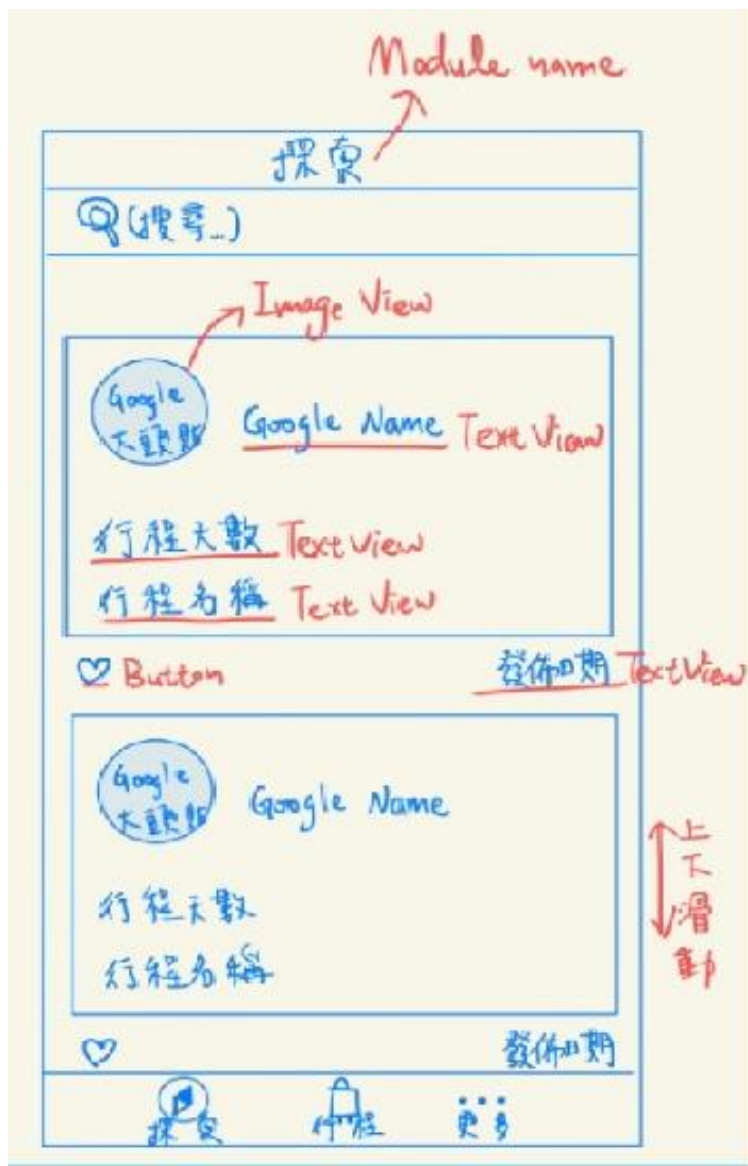 Module name
探索
(搜尋...)
Image View
Google
大頭貼
Google Name TextView
行程天數 TextView
行程名稱 Text View
Button
發佈日期 TextView
Google
大頭貼
Google Name
行程天數
行程名稱
上下滑動
發佈日期
探索 行程 更多